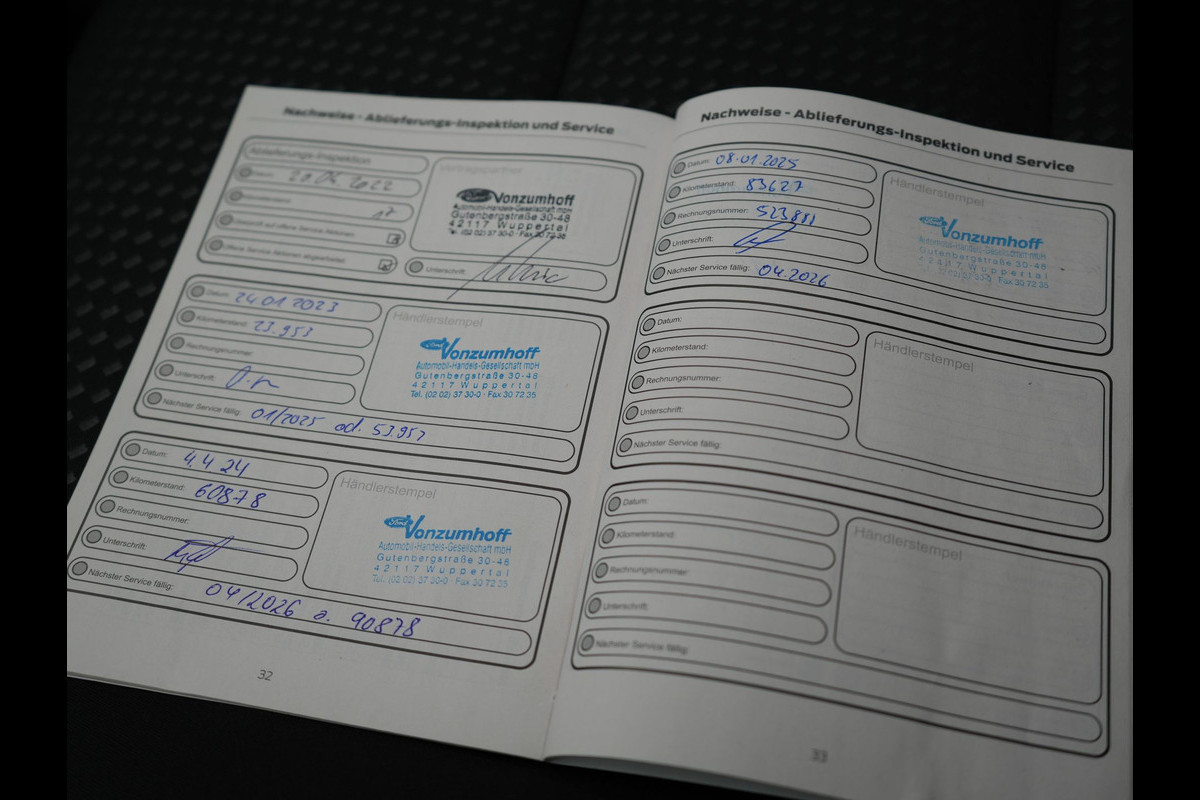 Nachweise - Ablieferungs-Inspektion und Service
Ablieferungs-Inspektion
2022
17
Vertragspartner
Ford Vonzumhoff
Automobil-Handels-Gesellschaft mbH
Gutenbergstraße 30-48
42117 Wuppertal
Tel. (02 02) 37 30-0 · Fax 30 72 35
Unterschrift:
Datum: 24.01.2023
Kilometerstand: 23.953
Rechnungsnummer:
Unterschrift:
Nächster Service fällig: 01/2025 od. 53.953
Händlerstempel
Ford Vonzumhoff
Automobil-Handels-Gesellschaft mbH
Gutenbergstraße 30-48
42117 Wuppertal
Tel. (02 02) 37 30-0 · Fax 30 72 35
Datum: 4.4 24
Kilometerstand: 60878
Rechnungsnummer:
Unterschrift:
Nächster Service fällig: 04/2026 o. 90878
Händlerstempel
Ford Vonzumhoff
Automobil-Handels-Gesellschaft mbH
Gutenbergstraße 30-48
42117 Wuppertal
Tel. (02 02) 37 30-0 · Fax 30 72 35
32
Nachweise - Ablieferungs-Inspektion und Service
Datum: 08.01.2025
Kilometerstand: 83627
Rechnungsnummer:
Unterschrift:
Nächster Service fällig: 04.2026
Händlerstempel
Ford Vonzumhoff
Automobil-Handels-Gesellschaft mbH
Gutenbergstraße 30-48
42117 Wuppertal
Tel. (02 02) 37 30-0 · Fax 30 72 35
Datum:
Kilometerstand:
Rechnungsnummer:
Unterschrift:
Nächster Service fällig:
Händlerstempel
Datum:
Kilometerstand:
Rechnungsnummer:
Unterschrift:
Nächster Service fällig:
Händlerstempel
33